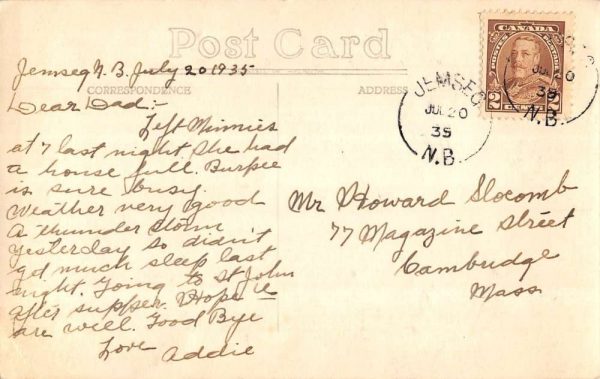 Post Card
CORRESPONDENCE
ADDRESS
Jemseg N.B. July 20 1935
Dear Dad:-
Left Minnies
at 7 last night. She had
a house full. Burpee
is sure busy.
Weather very good
A thunder storm
yesterday so didn't
get much sleep last
night. Going to St John
after supper. Hope
are well. Good Bye
Love Addie
Mr Howard Slocomb
77 Magazine Street
Cambridge
Mass
CANADA
2 2
JEMSEG
JUL 20
35
N.B.
35
N.B.